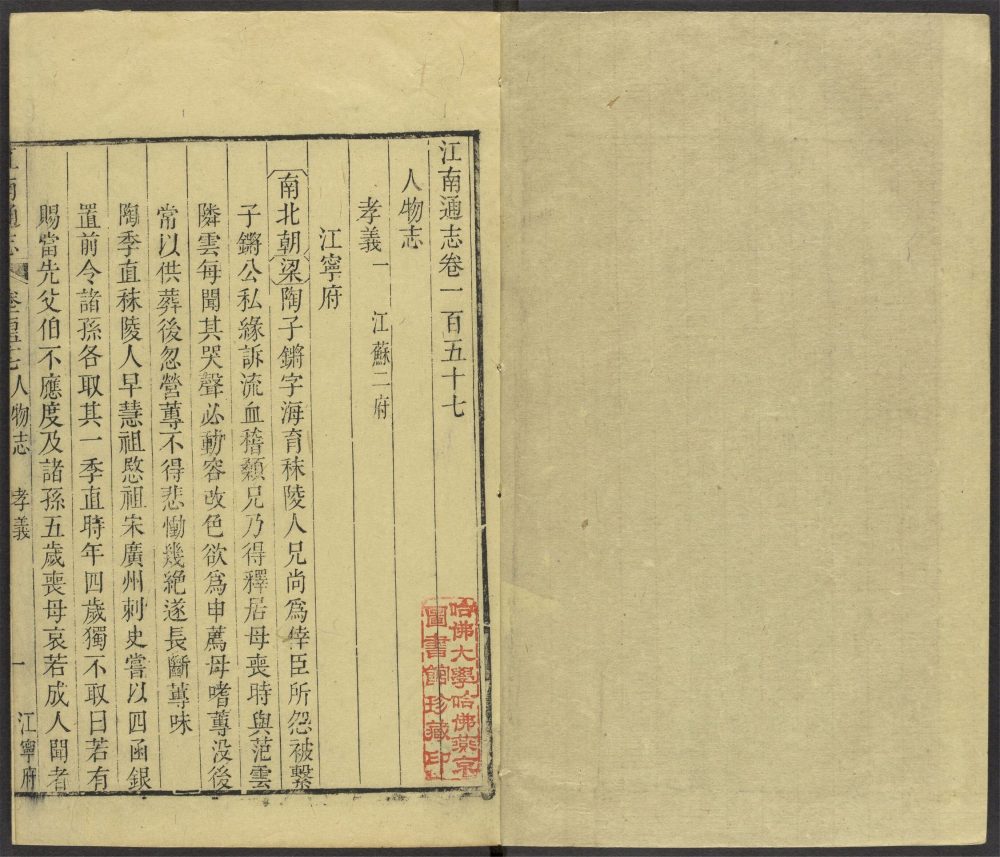 江南通志卷一百五十七
人物志
孝義一 江蘇二府
江寧府
南北朝梁陶子鏘字海育秣陵人兄尚爲倖臣所怨被繫
子鏘公私緣訴流血稽顙兄乃得釋居母喪時與范雲
隣雲每聞其哭聲必動容改色欲爲申薦母嗜蓴没後
常以供葬後忽營蓴不得悲慟幾絶遂長斷蓴味
陶季直秣陵人早慧祖愍祖宋廣州刺史嘗以四函銀
置前令諸孫各取其一季直時年四歲獨不取曰若有
賜當先父伯不應度及諸孫五歲喪母哀若成人聞者
江南通志 卷一百五十七 人物志 孝義 一 江寧府
哈佛大學哈佛燕京
圖書館珍藏印